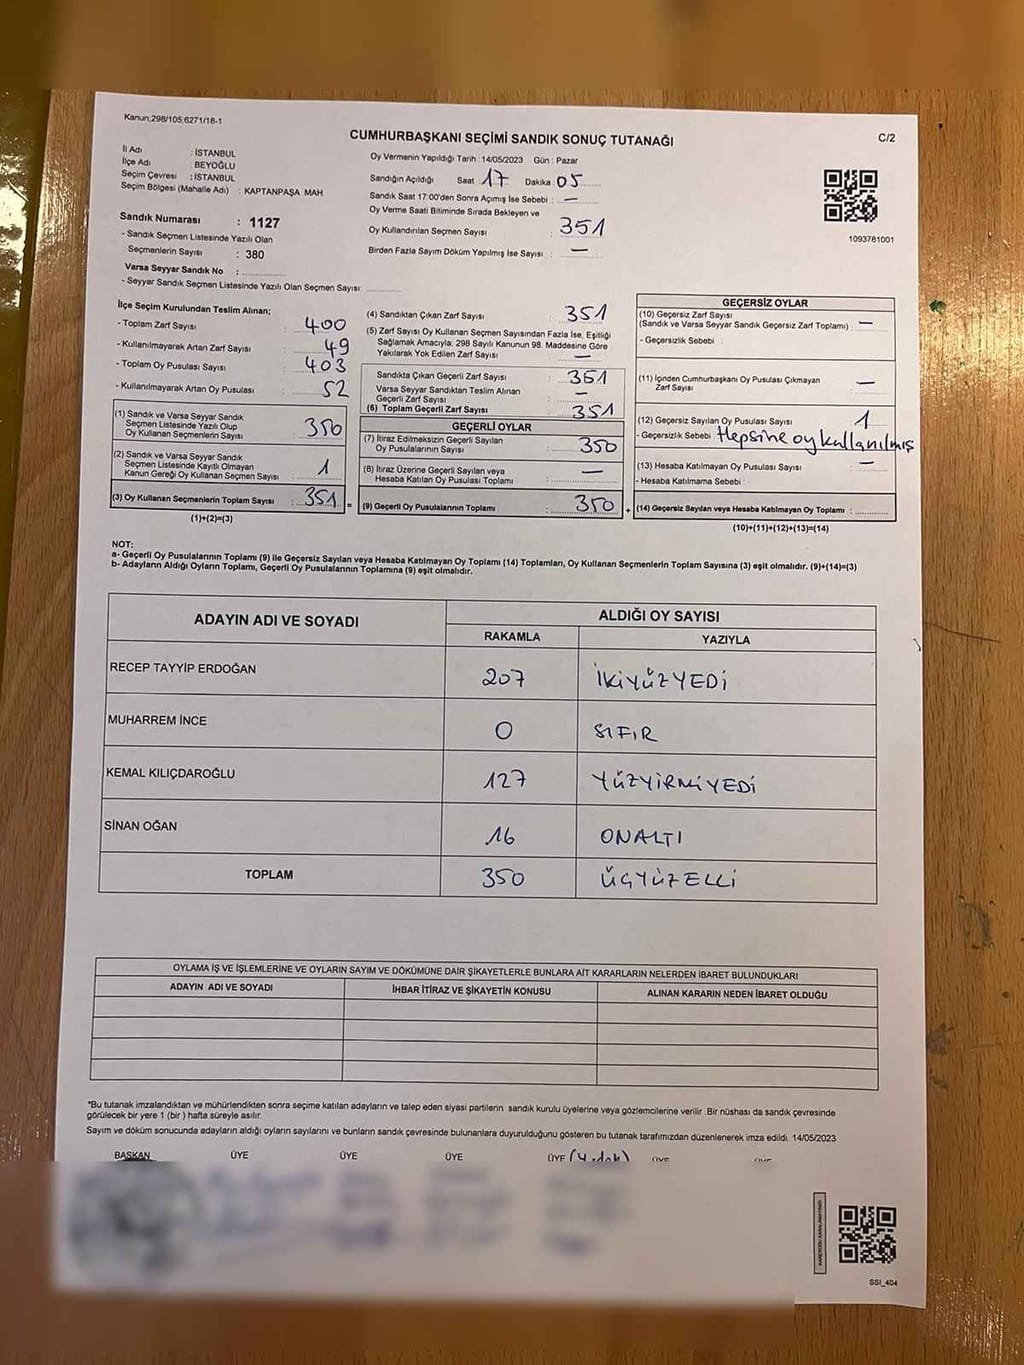 Kanun;298/105;6271/18-1
CUMHURBAŞKANI SEÇİMİ SANDIK SONUÇ TUTANAĞI
C/2
İl Adı : İSTANBUL
İlçe Adı : BEYOĞLU
Seçim Çevresi : İSTANBUL
Seçim Bölgesi (Mahalle Adı) : KAPTANPAŞA MAH.
Sandık Numarası : 1127
- Sandık Seçmen Listesinde Yazılı Olan
Seçmenlerin Sayısı : 380
Varsa Seyyar Sandık No :
- Seyyar Sandık Seçmen Listesinde Yazılı Olan Seçmen Sayısı:
Oy Vermenin Yapıldığı Tarih : 14/05/2023 Gün : Pazar
Sandığın Açıldığı Saat : 17 Dakika : 05
Sandık Saat 17:00'den Sonra Açımış İse Sebebi : —
Oy Verme Saati Bitiminde Sırada Bekleyen ve
Oy Kullandırılan Seçmen Sayısı : 351
Birden Fazla Sayım Döküm Yapılmış İse Sayısı : —
1093781001
İlçe Seçim Kurulundan Teslim Alınan;
- Toplam Zarf Sayısı : 400
- Kullanılmayarak Artan Zarf Sayısı : 49
- Toplam Oy Pusulası Sayısı : 403
- Kullanılmayarak Artan Oy Pusulası : 52
(1) Sandık ve Varsa Seyyar Sandık
Seçmen Listesinde Yazılı Olup
Oy Kullanan Seçmenlerin Sayısı : 350
(2) Sandık ve Varsa Seyyar Sandık
Seçmen Listesinde Kayıtlı Olmayan
Kanun Gereği Oy Kullanan Seçmen Sayısı : 1
(3) Oy Kullanan Seçmenlerin Toplam Sayısı : 351 =
(1)+(2)=(3)
(4) Sandıktan Çıkan Zarf Sayısı : 351
(5) Zarf Sayısı Oy Kullanan Seçmen Sayısından Fazla İse, Eşitliği
Sağlamak Amacıyla; 298 Sayılı Kanunun 98. Maddesine Göre
Yakılarak Yok Edilen Zarf Sayısı : —
Sandıkta Çıkan Geçerli Zarf Sayısı : 351
Varsa Seyyar Sandıktan Teslim Alınan
Geçerli Zarf Sayısı : —
(6) Toplam Geçerli Zarf Sayısı : 351
GEÇERLİ OYLAR
(7) İtiraz Edilmeksizin Geçerli Sayılan
Oy Pusulalarının Sayısı : 350
(8) İtiraz Üzerine Geçerli Sayılan veya
Hesaba Katılan Oy Pusulası Toplamı : —
(9) Geçerli Oy Pusulalarının Toplamı : 350 +
GEÇERSİZ OYLAR
(10) Geçersiz Zarf Sayısı
(Sandık ve Varsa Seyyar Sandık Geçersiz Zarf Toplamı) : —
- Geçersizlik Sebebi :
(11) İçinden Cumhurbaşkanı Oy Pusulası Çıkmayan
Zarf Sayısı : —
(12) Geçersiz Sayılan Oy Pusulası Sayısı : 1
- Geçersizlik Sebebi : Hepsine oy kullanılmış
(13) Hesaba Katılmayan Oy Pusulası Sayısı : —
- Hesaba Katılmama Sebebi :
(14) Geçersiz Sayılan veya Hesaba Katılmayan Oy Toplamı :
(10)+(11)+(12)+(13)=(14)
NOT:
a- Geçerli Oy Pusulalarının Toplamı (9) ile Geçersiz Sayılan veya Hesaba Katılmayan Oy Toplamı (14) Toplamları, Oy Kullanan Seçmenlerin Toplam Sayısına (3) eşit olmalıdır. (9)+(14)=(3)
b- Adayların Aldığı Oyların Toplamı, Geçerli Oy Pusulalarının Toplamına (9) eşit olmalıdır.
ADAYIN ADI VE SOYADI
ALDIĞI OY SAYISI
RAKAMLA YAZIYLA
RECEP TAYYİP ERDOĞAN 207 İKİYÜZYEDİ
MUHARREM İNCE 0 SIFIR
KEMAL KILIÇDAROĞLU 127 YÜZYİRMİYEDİ
SİNAN OĞAN 16 ONALTI
TOPLAM 350 ÜÇYÜZELLİ
OYLAMA İŞ VE İŞLEMLERİNE VE OYLARIN SAYIM VE DÖKÜMÜNE DAİR ŞİKAYETLERLE BUNLARA AİT KARARLARIN NELERDEN İBARET BULUNDUKLARI
ADAYIN ADI VE SOYADI İHBAR İTİRAZ VE ŞİKAYETİN KONUSU ALINAN KARARIN NEDEN İBARET OLDUĞU
*Bu tutanak imzalandıktan ve mühürlendikten sonra seçime katılan adayların ve talep eden siyasi partilerin sandık kurulu üyelerine veya gözlemcilerine verilir .Bir nüshası da sandık çevresinde
görülecek bir yere 1 (bir ) hafta süreyle asılır.
Sayım ve döküm sonucunda adayların aldığı oyların sayılarını ve bunların sandık çevresinde bulunanlara duyurulduğunu gösteren bu tutanak tarafımızdan düzenlenerek imza edildi. 14/05/2023
BAŞKAN ÜYE ÜYE ÜYE ÜYE
SSI_404